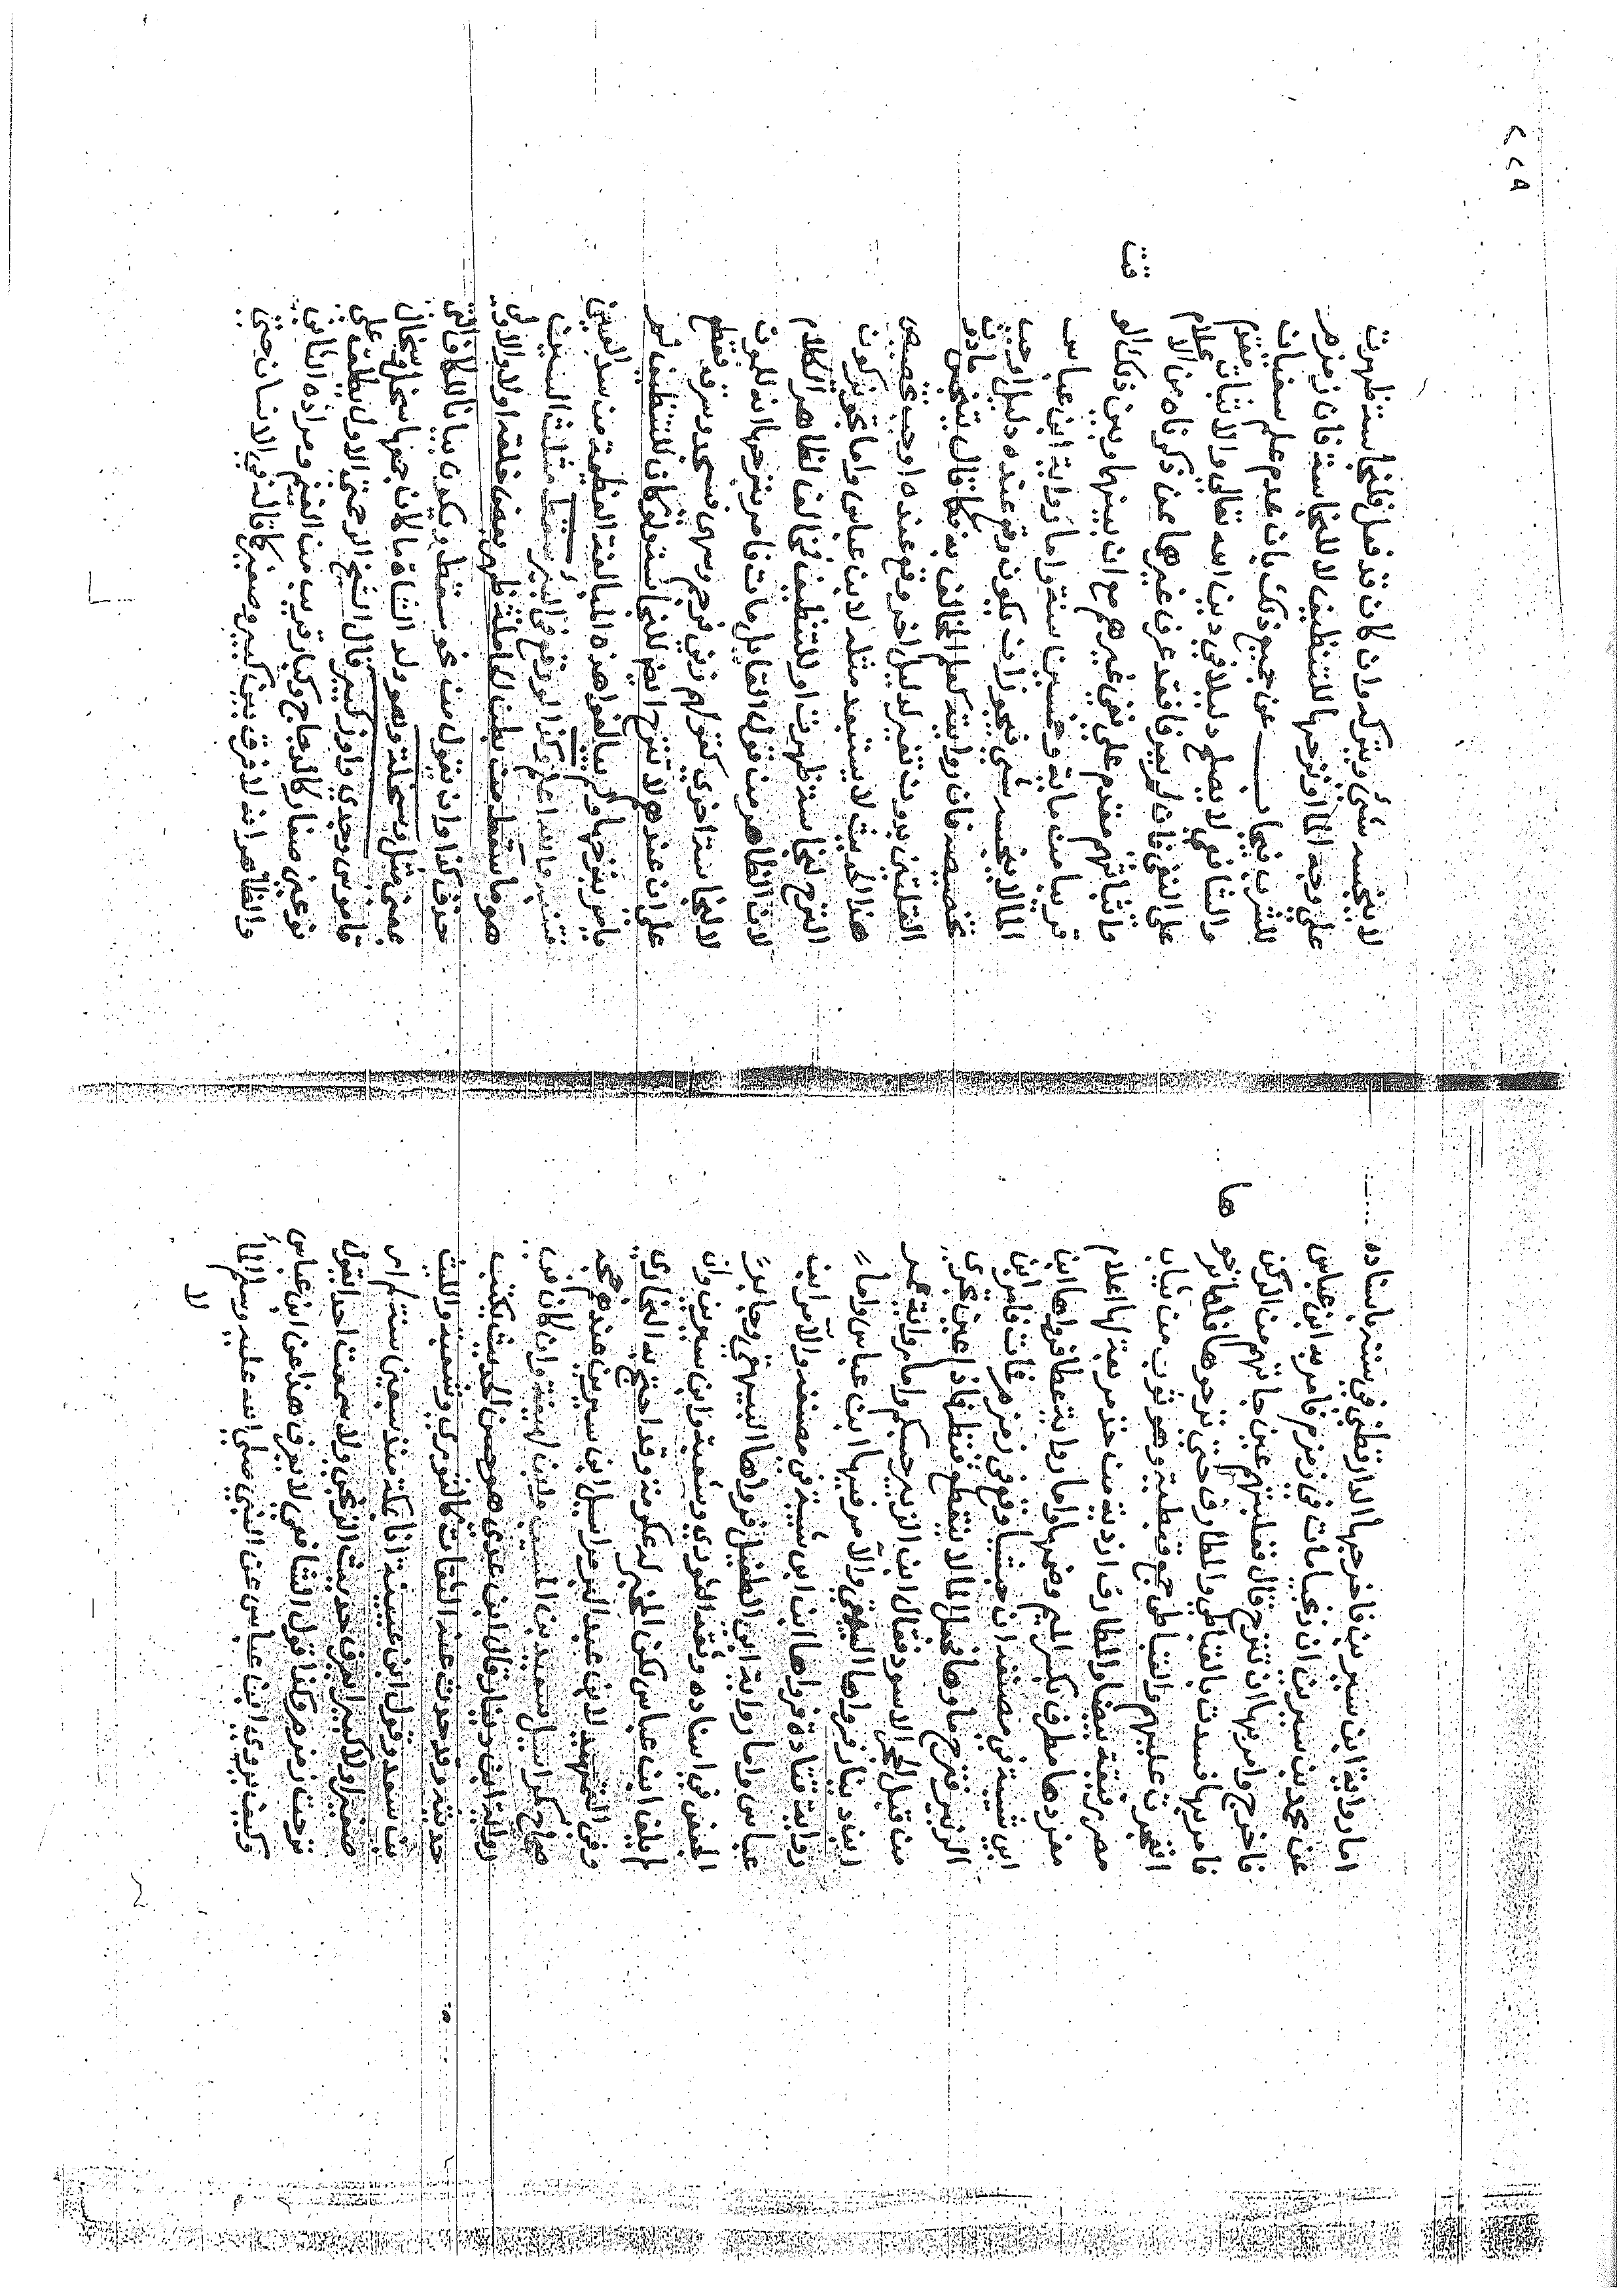 ٢٢٩
اما رواية ابن سيرين فاخرجها الدارقطني في سننه باسناده
عن محمد بن سيرين ان زنجيا مات في زمزم فامر به ابن عباس
فاخرج وامر بها ان تنزح قال فغلبتهم عين جاتهم من الركن
فامر بها فسدت بالقباطي والمطارف حتى نزحوها فلما نزحو
ها
انفجرت عليهم والقباطي جمع قبطية وهو ثوب من ثياب
مصر رقيقة بيضا والمطارف اردية من خز مربعة لها اعلام
مفردها مطرف بكسر الميم وضمها واما رواية عطا فرواها ابن
ابي شيبة في مصنفه ان حبشيا وقع في زمزم فمات فامر ابن
الزبير فنزح ماوها فجعل الما لا ينقطع فنظر فاذا عين تجري
من قبل الحجر الاسود فقال ابن الزبير حسبكم واما رواية عمر
ابن دينار فرواها البيهقي والآمر فيها ابن عباس واما
رواية قتادة فرواها ابن ابي شيبة في مصنفه والآمر ابن
عباس واما رواية ابي الطفيل فرواها البيهقي وجابر
الجعفي في اسناده وثقه الثوري وشعبة وابن سيرين وان
لم يلق ابن عباس لكن المخبر له عكرمة وقد احتج به البخاري
وفي التمهيد لابن عبد البر مراسيل ابن سيرين عندهم
صحاح كمراسيل سعيد بن المسيب وابن لهيعة وان كان من
رواية ابن دينار قال ابن عدي هو حسن الحديث يكتب
حديثه وقد حدث عنه الثقات كالثوري وشعبة والليث
بن سعد وقول ابن عيينة انا بمكة منذ سبعين سنة لم ار
صغيرا ولا كبيرا يعرف حديث الزنجي ولا سمعت احدا يقول
نزحت زمزم وكذا قول الشافعي لا يعرف هذا عن ابن عباس
وكيف يروي ابن عباس عن النبي صلى الله عليه وسلم الماء
لا
لا ينجسه شئ ويتركه وان كان قد فعل فلنجاسة ظهرت
على وجه الما او نزحها للتنظيف لا للنجاسة فان زمزم
للشرب فيجاب عن جميع ذلك بان عدم علم سفيان
والشافعي لا يصلح دليلا في دين الله تعالى والاثبات مقدم
على النفي فان لم يعرفا فقد عرف غيرهما ممن ذكرناه من الاعلام
واثباتهم مقدم على نفي غيرهم مع ان بينهما وبين ذلك الو
قت
قريبا من ماية وخمسين سنة واما رواية ابن عباس
الما لا ينجسه شئ فيجوز ان يكون وقع عنده دليل اوجب
تخصيصه فان روايته كعلم المخالف به فكما قال بتنجيس مادون
القلتين بدون تغير لدليل اخر وقع عنده اوجب تخصيص
هذا الحديث لا يستبعد مثله لابن عباس واما تجويز كون
النزح لنجاسة ظهرت او للتنظيف فمخالف لظاهر الكلام
لان الظاهر من قول القايل مات فامر بنزحها انه للموت
لا لنجاسة اخرى كقولهم زنى فرجم وسهى فسجد وسرق فقطع
على ان عندهم لا تنزح ايضا للنجاسة ولو كان للتنظيف لم
يامر بنزحها ولم يبالغوا هذه المبالغة العظيمة من سد العين
فتنبه والله اعلم وكذا لو وقع في البير
هو ما سقط من بطن الحاملة ظهر بعض خلقه اولا والاولى
حذف كذا وان يقول من نحو سقط ويكون بيانا للكاف التي
بمعنى مثل وسخلة وهو ولد الشاة والان جمعها سخل وسخال
قاموس وجدي واوز كبير قال الشيخ الرحمتي الاول يطلق على
نوعين صغار كالدجاج وكبار قريب من الغنم ومراده الثاني
والظاهر انه لا فرق بين كبيره وصغيره كما قالوا في الانسان حتى